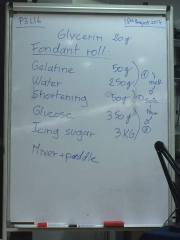 P3L16
Glycerin 20g
Fondant roll:
Gelatine 50g
Water 250g
Shortening 50g
Glucose 350g
Icing sugar 3KG
Mixer + paddle